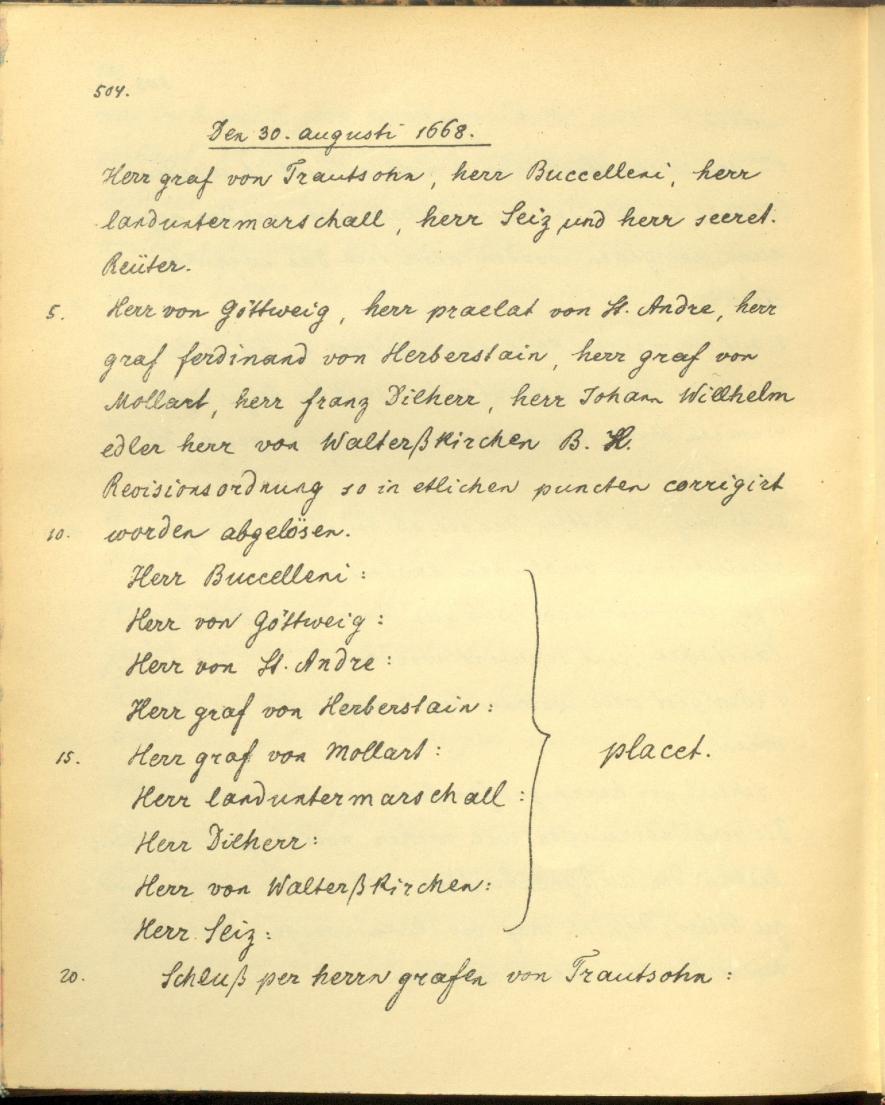 504.
Den 30. augusti 1668.
Herr graf von Trautsohn, herr Buccelleni, herr
landuntermarschall, herr Seiz und herr secret.
Reüter.
5. Herr von Göttweig, herr praelat von St. Andre, herr
graf ferdinand von Herberstain, herr graf von
Mollart, herr franz Dilherr, herr Johann Willhelm
edler herr von Walterßkirchen B. H.
Revisionsordnung so in etlichen puncten corrigirt
10. worden abgelösen.
Herr Buccelleni:
Herr von Göttweig:
Herr von St. Andre:
Herr graf von Herberstain:
15. Herr graf von Mollart: placet.
Herr landuntermarschall:
Herr Dilherr:
Herr von Walterßkirchen:
Herr Seiz:
20. Schluß per herrn grafen von Trautsohn: